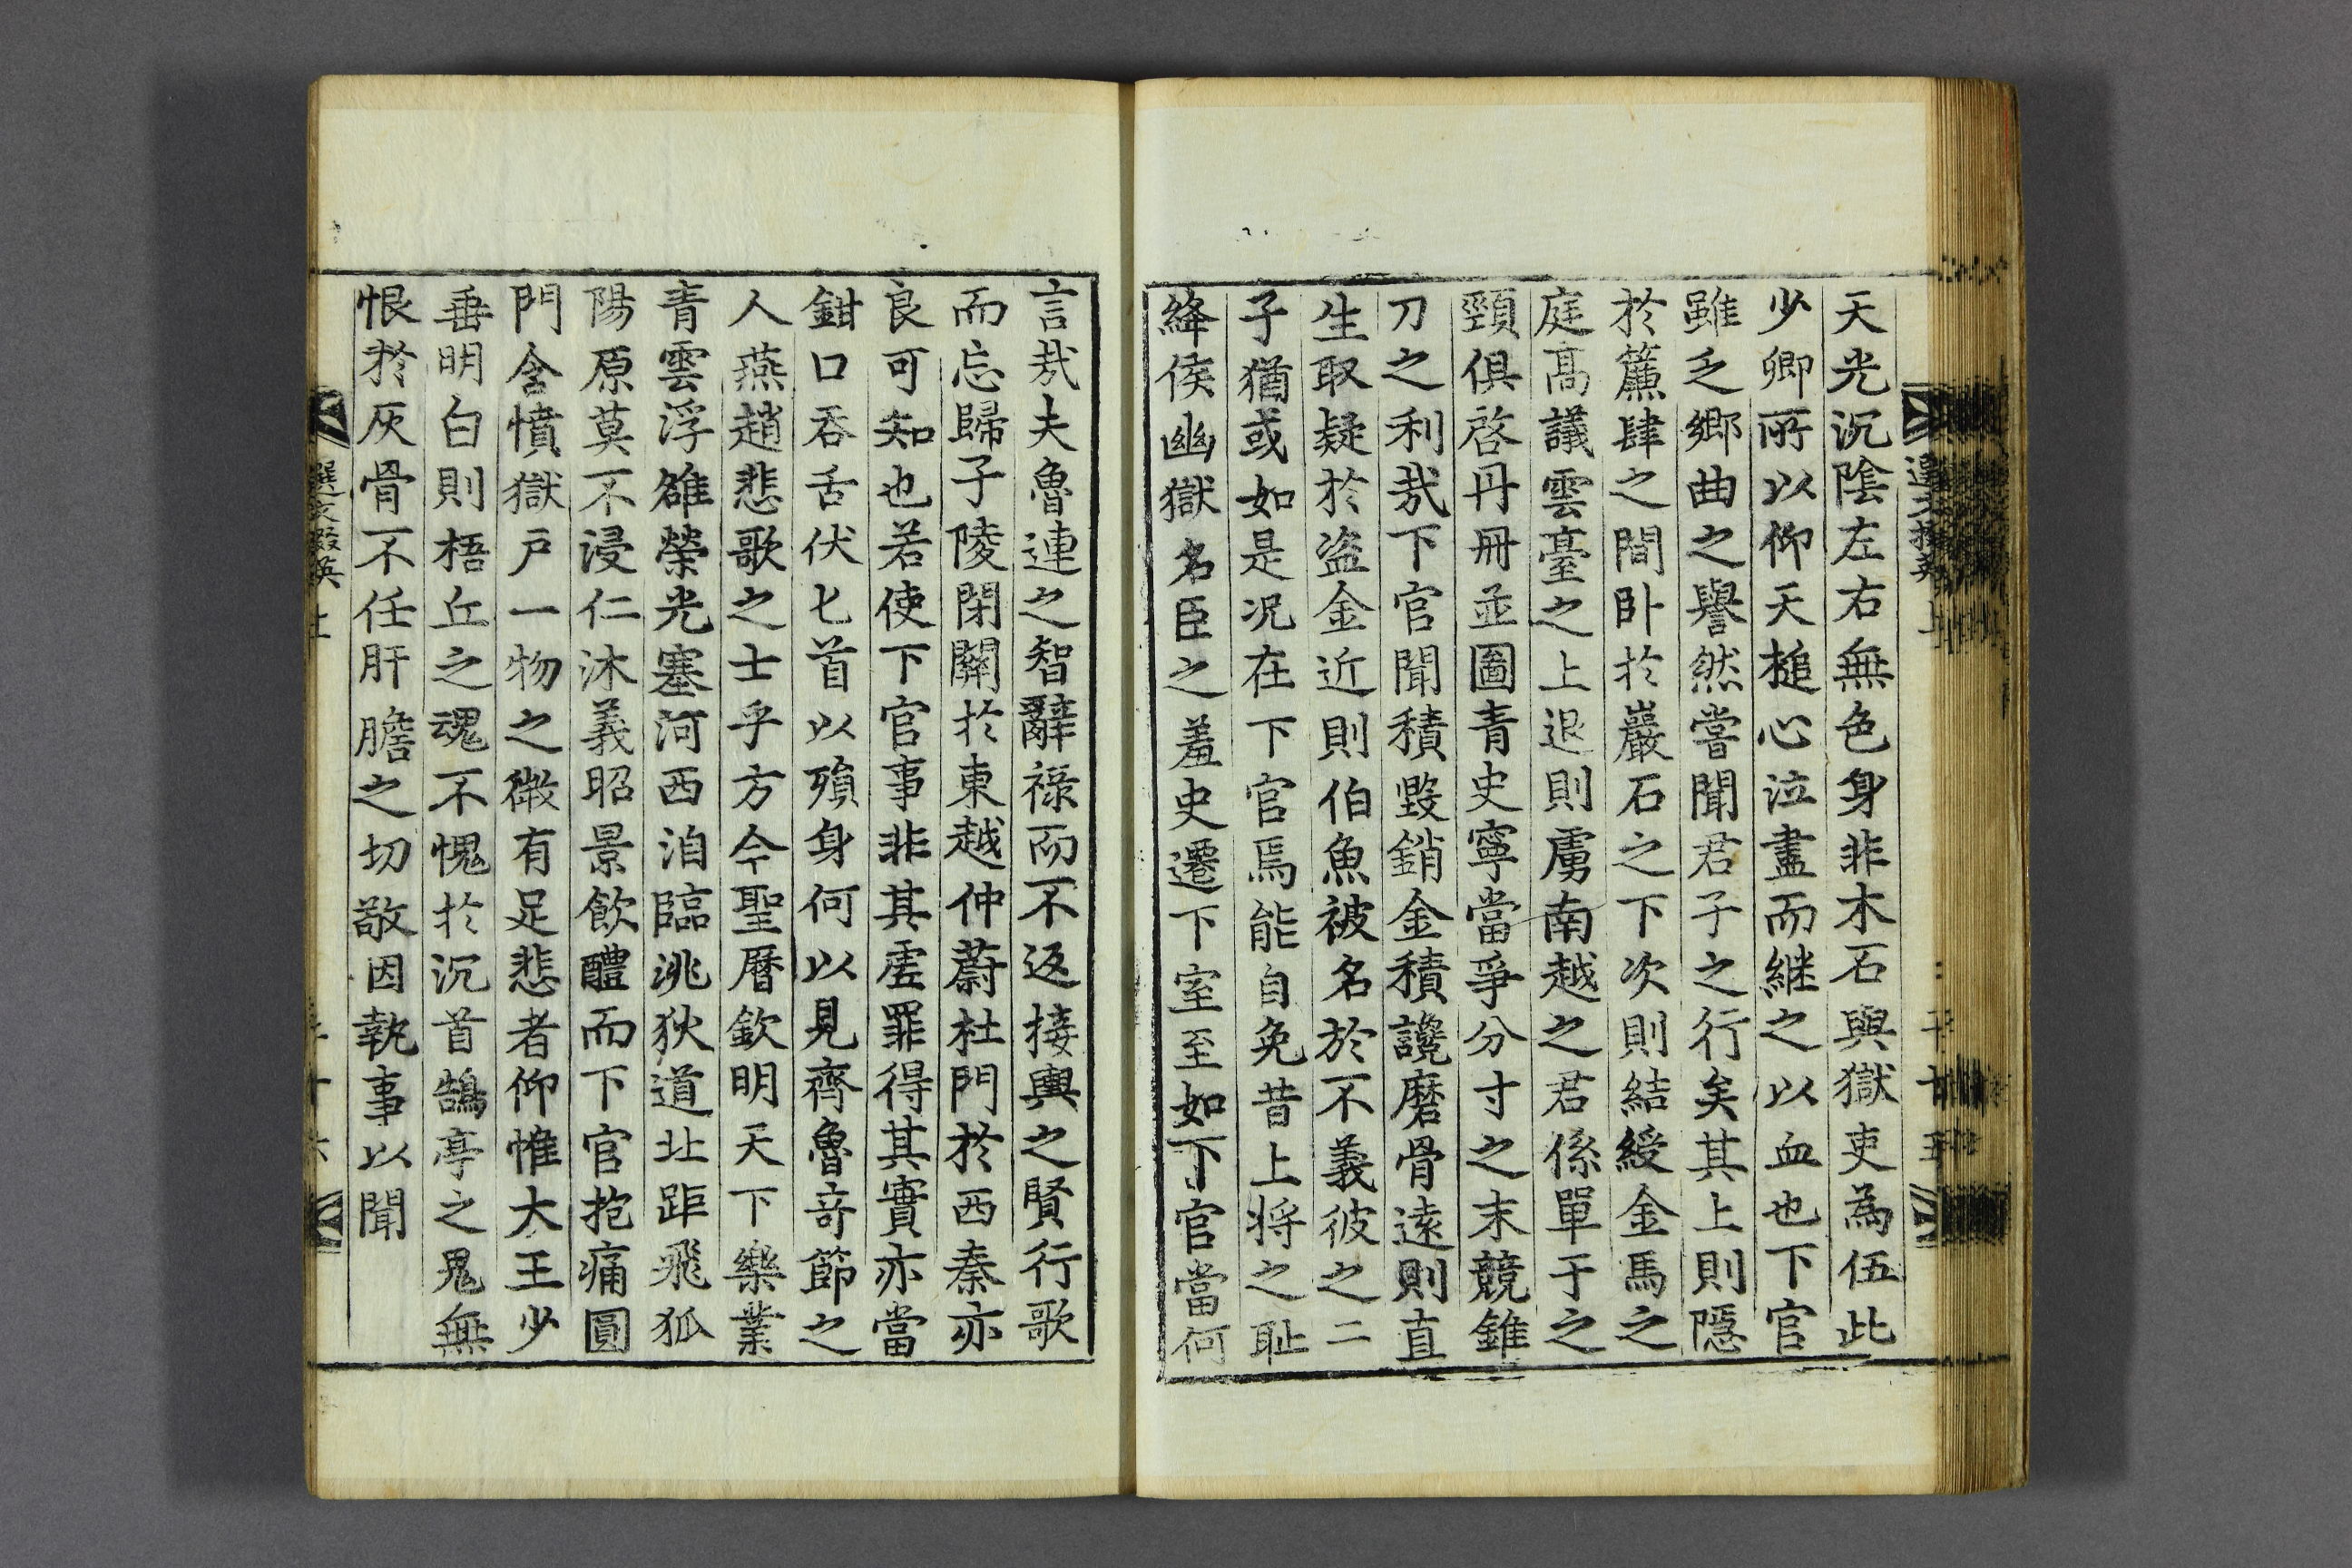 天光沉陰左右無色身非木石與獄吏為伍此
少卿所以仰天搥心泣盡而継之以血也下官
雖乏鄉曲之譽然嘗聞君子之行矣其上則隱
於簾肆之間卧於巖石之下次則結綬金馬之
庭髙議雲臺之上退則虜南越之君係單于之
頸俱啓丹冊並圖青史寧當爭分寸之末競錐
刀之利㢤下官聞積毀銷金積讒磨骨遠則直
生取疑於盗金近則伯魚被名於不義彼之二
子猶或如是况在下官焉能自免昔上将之耻
絳侯幽獄名臣之羞史遷下室至如下官當何
言㢤夫魯連之智辭禄而不返接輿之賢行歌
而忘歸子陵閉關於東越仲蔚杜門於西秦亦
良可知也若使下官事非其虗罪得其實亦當
鉗口吞舌伏匕首以殞身何以見齊魯奇節之
人燕趙悲歌之士乎方今聖曆欽明天下樂業
青雲浮雒榮光塞河西洎臨洮狄道北距飛狐
陽原莫不浸仁沐義昭景飲醴而下官抱痛圓
門含憤獄戸一物之微有足悲者仰惟大王少
垂明白則梧丘之魂不愧於沉首鵠亭之鬼無
恨於灰骨不任肝膽之切敬因執事以聞
選文掇英 上